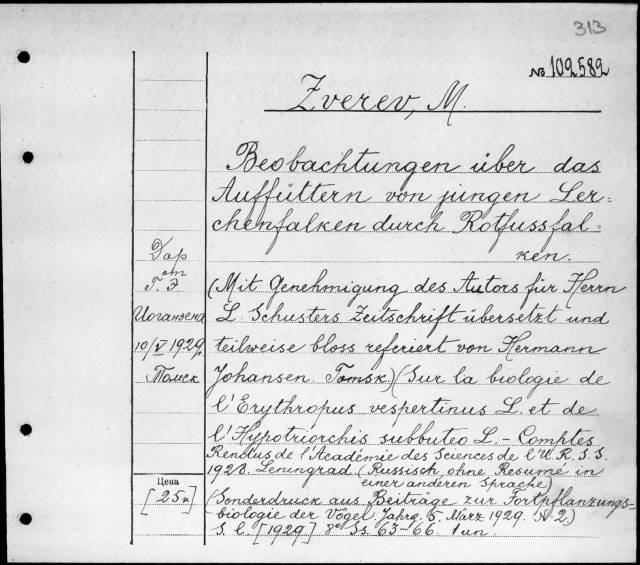 313
№ 102582
Zverev, M.
Beobachtungen über das
Auffüttern von jungen Ler=
chenfalken durch Rotfussfal=
ken.
Дар
от
Г. Э
Иоганзена
10/V 1929г.
Томск
(Mit Genehmigung des Autors für Herrn
L. Schusters Zeitschrift übersetzt und
teilweise bloss referiert von Hermann
Johansen Tomsk.) (Sur la biologie de
l'Erythropus vespertinus L. et de
l'Hypotriorchis subbuteo L. – Comptes
Rendus de l'Académie des Sciences de l'U.R.S.S.
1928. Leningrad. (Russisch, ohne Resumé in
einer anderen Sprache)
Цена
[25к]
(Sonderdruck aus Beiträge zur Fortpflanzungs=
biologie der Vögel. Jahrg. 5. März 1929. N 2.)
S. l. [1929] 8° Ss. 65-66. 1 un.